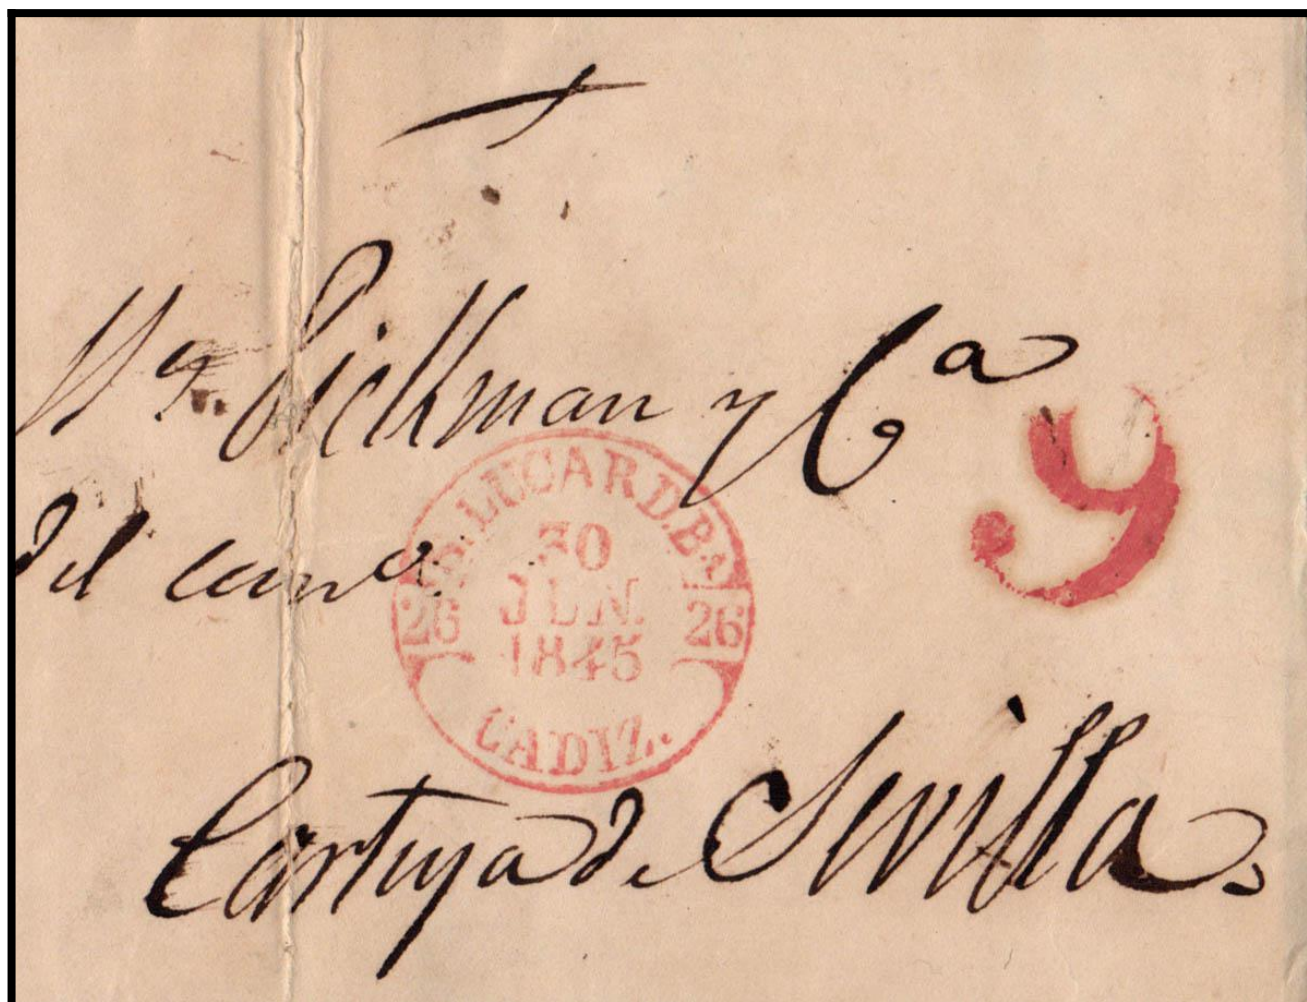 Pickman y Cª
9
del comº
S. LUCAR D. Bª.
30
JUN.
26 26
1845
CADIZ.
Cartuja de Sevilla